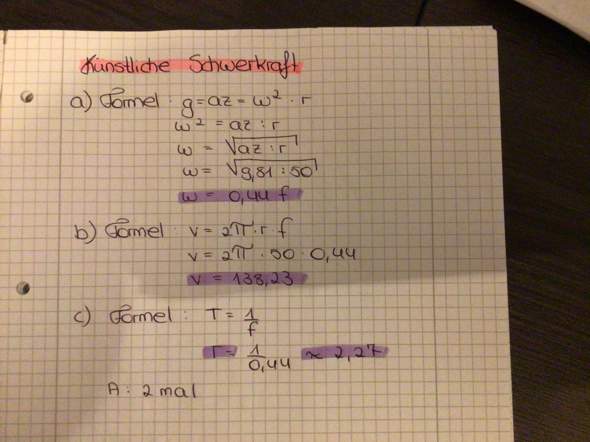 Künstliche Schwerkraft
a) Formel: g=az=ω²·r
ω²=az:r
ω = √az:r
ω = √9,81:50
ω = 0,44 f
b) Formel: v=2π·r·f
v=2π·50·0,44
v=138,23
c) Formel: T=1/f
T=1/0,44 ≈ 2,27
A: 2 mal